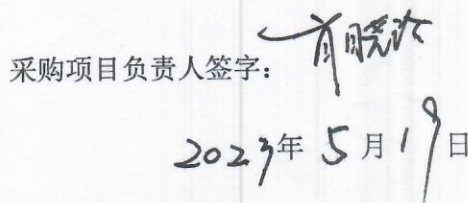 采购项目负责人签字：肖晓
2023年5月19日